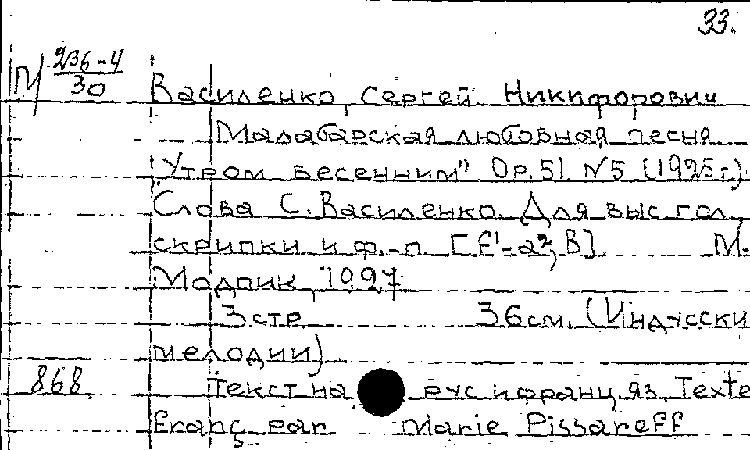 33.
М 236-4/30
Василенко, Сергей Никифорович
Малабарская любовная песня
"Утром весенним" Op.51 N5 (1925г.).
Слова С. Василенко. Для выс. гол.,
скрипки и ф.-п. [E¹-a², B] М.
Модпик, 1927
3 стр 36см. (Индусски
мелодии)
868 Текст на рус и франц яз. Texte
franç par Marie Pissareff